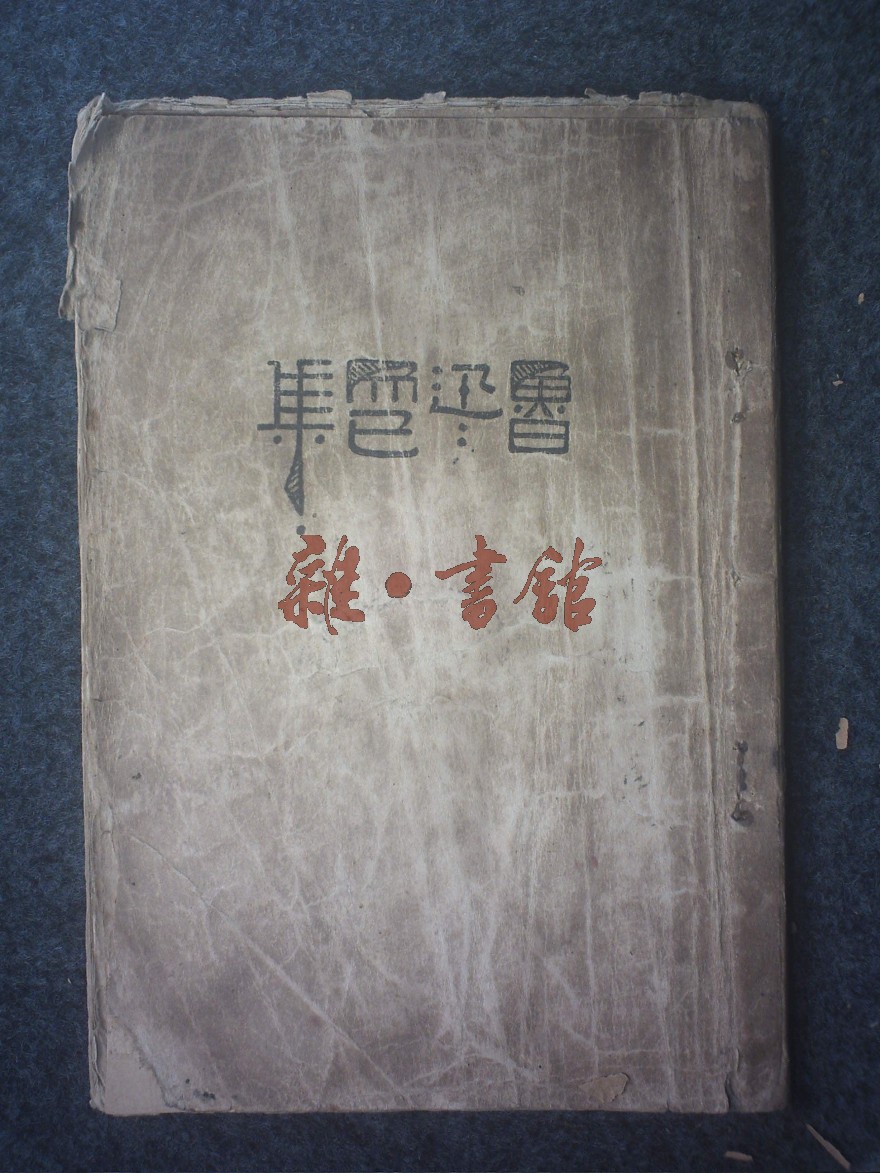 魯迅集
雜·書館